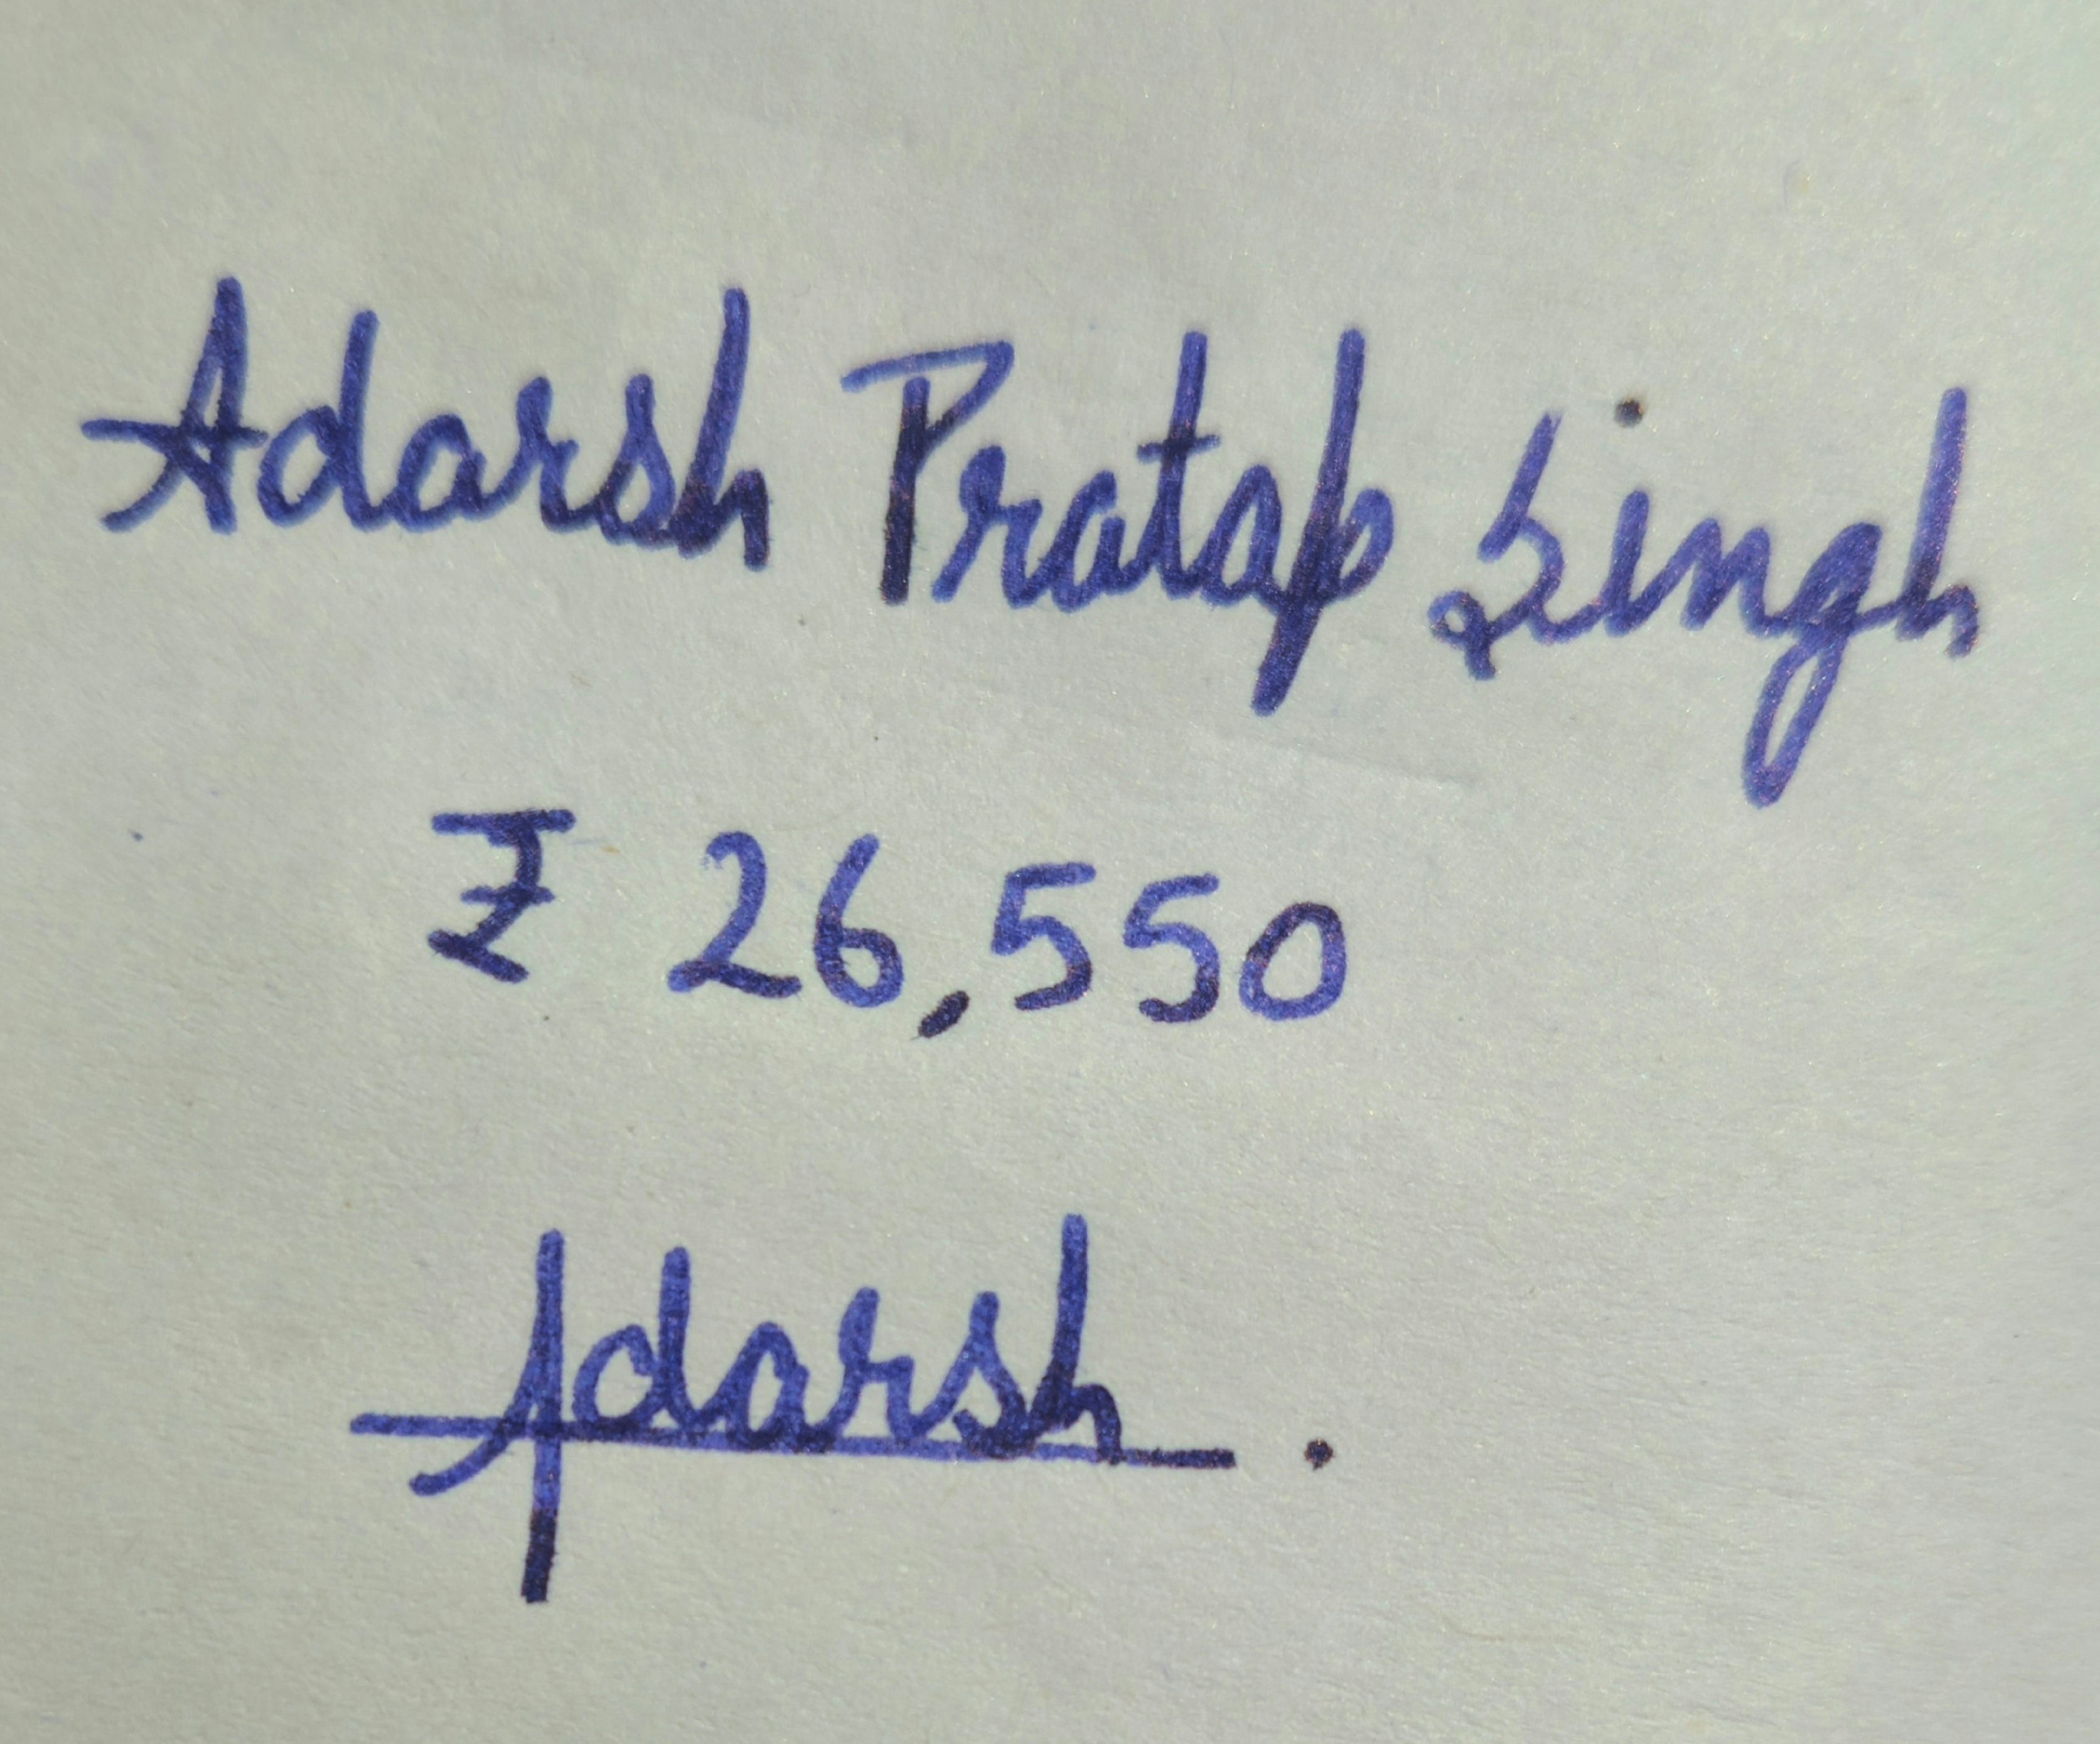 Adarsh Pratap Singh
₹ 26,550
Adarsh.